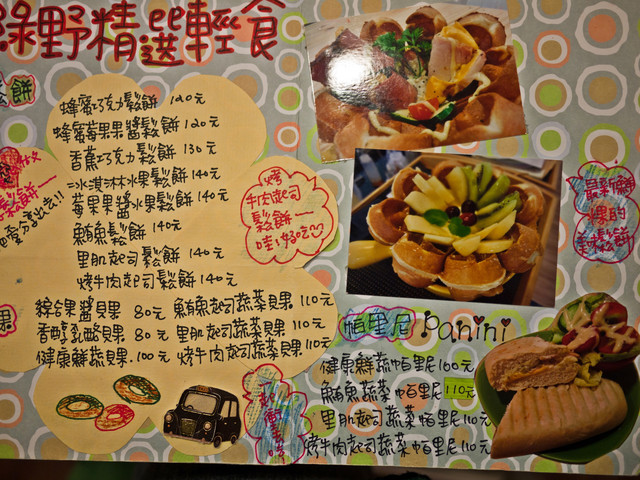 綠野精選輕食
鬆餅
蜂蜜巧克力鬆餅 120元
蜂蜜莓果果醬鬆餅 120元
香蕉巧克力鬆餅 130元
冰淇淋水果鬆餅 140元
莓果果醬水果鬆餅 140元
鮪魚鬆餅 140元
里肌起司鬆餅 140元
烤牛肉起司鬆餅 140元
烤
牛肉起司
鬆餅——
哇!好吃
鬆餅——
分享出去!!
果
綜合果醬貝果 80元 鮪魚起司蔬菜貝果 110元
香醇乳酪貝果 80元 里肌起司蔬菜貝果 110元
健康鮮蔬貝果 100元 烤牛肉起司蔬菜貝果 110元
最新鮮
裡的
鬆餅
帕里尼 Panini
健康鮮蔬帕里尼 100元
鮪魚蔬菜帕里尼 110元
里肌起司蔬菜帕里尼 110元
烤牛肉起司蔬菜帕里尼 110元